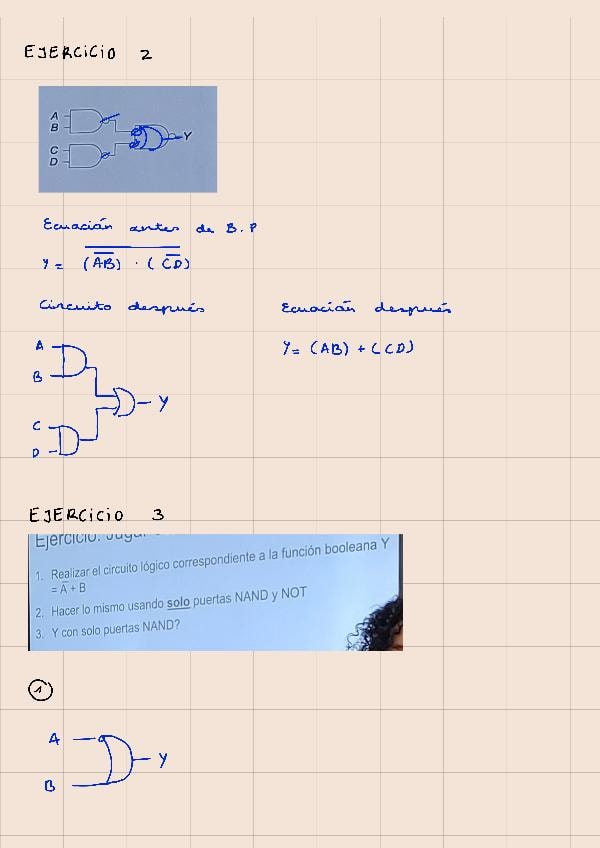 EJERCICIO 2
A
B
C
D
Y
Ecuación antes de B.P
Y = (A̅B̅) · (C̅D̅)
Circuito después
Ecuación después
A
B
C
D
Y
Y = (AB) + (CD)
EJERCICIO 3
1. Realizar el circuito lógico correspondiente a la función booleana Y
= A̅ + B
2. Hacer lo mismo usando solo puertas NAND y NOT
3. Y con solo puertas NAND?
1
A
B
Y